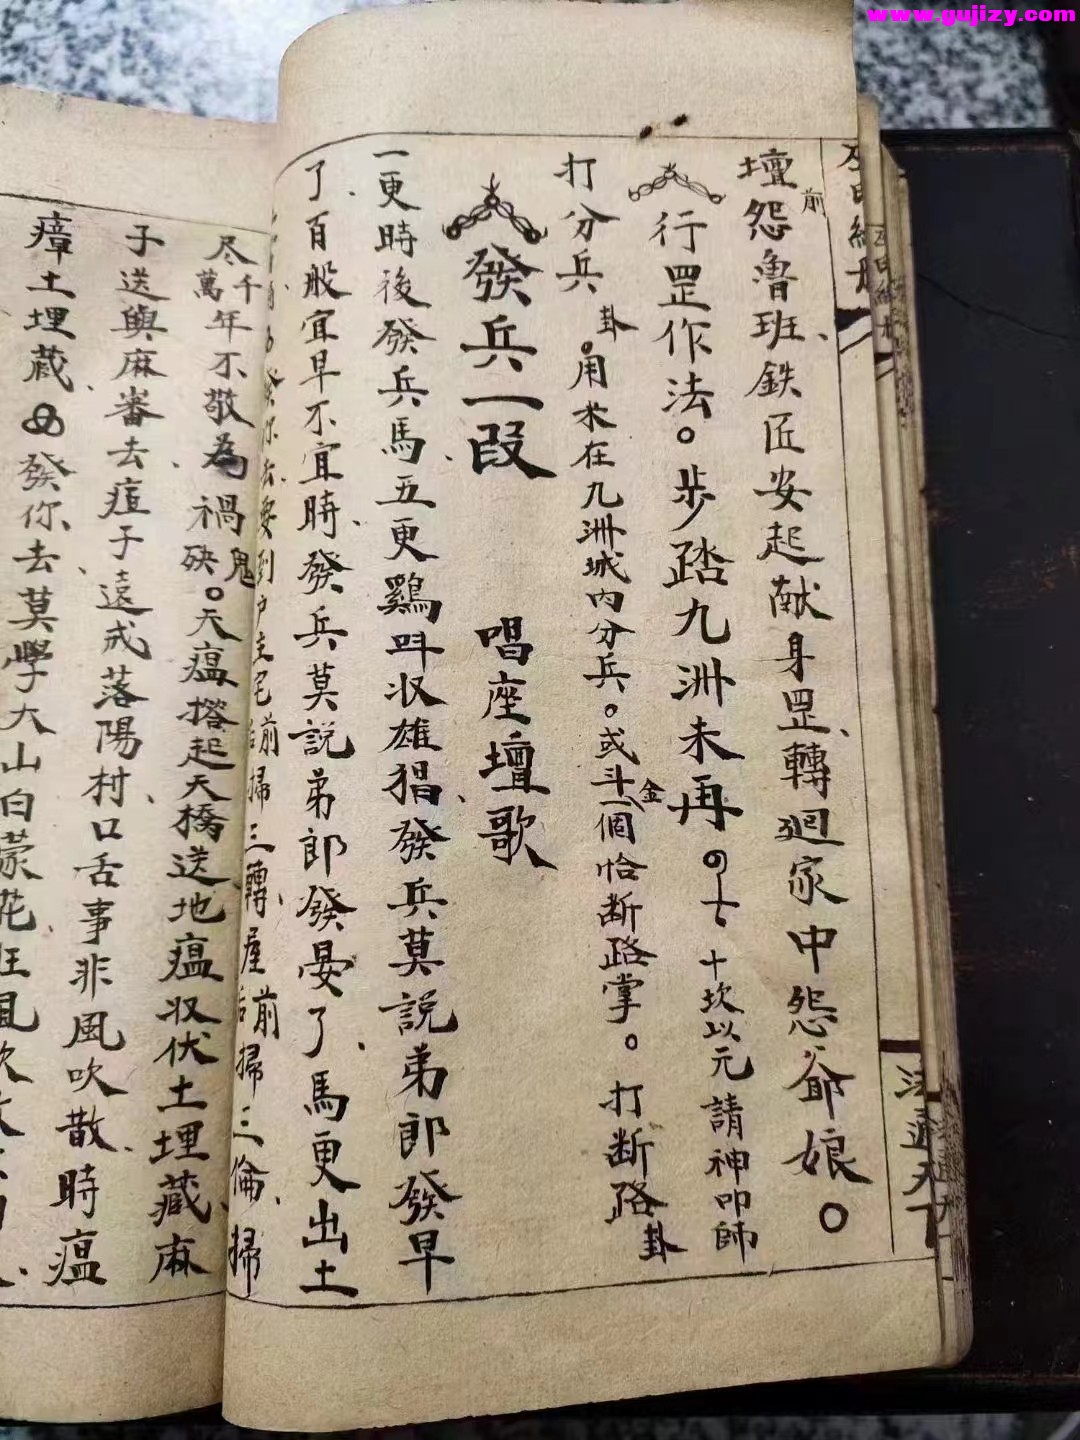 www.gujizy.com
壇前怨魯班鉄匠安起献身罡轉廻家中怨爺娘。
行罡作法。步踏九洲未再
十坎以元請神叩師
打分兵卦。用米在九洲城内分兵。或斗金一個恰断路掌。打断路卦
發兵一段 唱座壇歌
一更時後發兵馬五更鷄叫収雄猖發兵莫説弟郎發早
了百般宜早不宜時發兵莫説弟郎發晏了馬更出土
發你去要到户主宅前掃三轉屋前掃三倫掃
尽千萬年不敬為禍鬼
砄。天瘟搭起天橋送地瘟収伏土埋藏麻
子送與麻審去痘子遠戒落陽村口舌事非風吹散時瘟
瘴土埋藏發你去莫學大山白蒙花狂風吹
法通天下